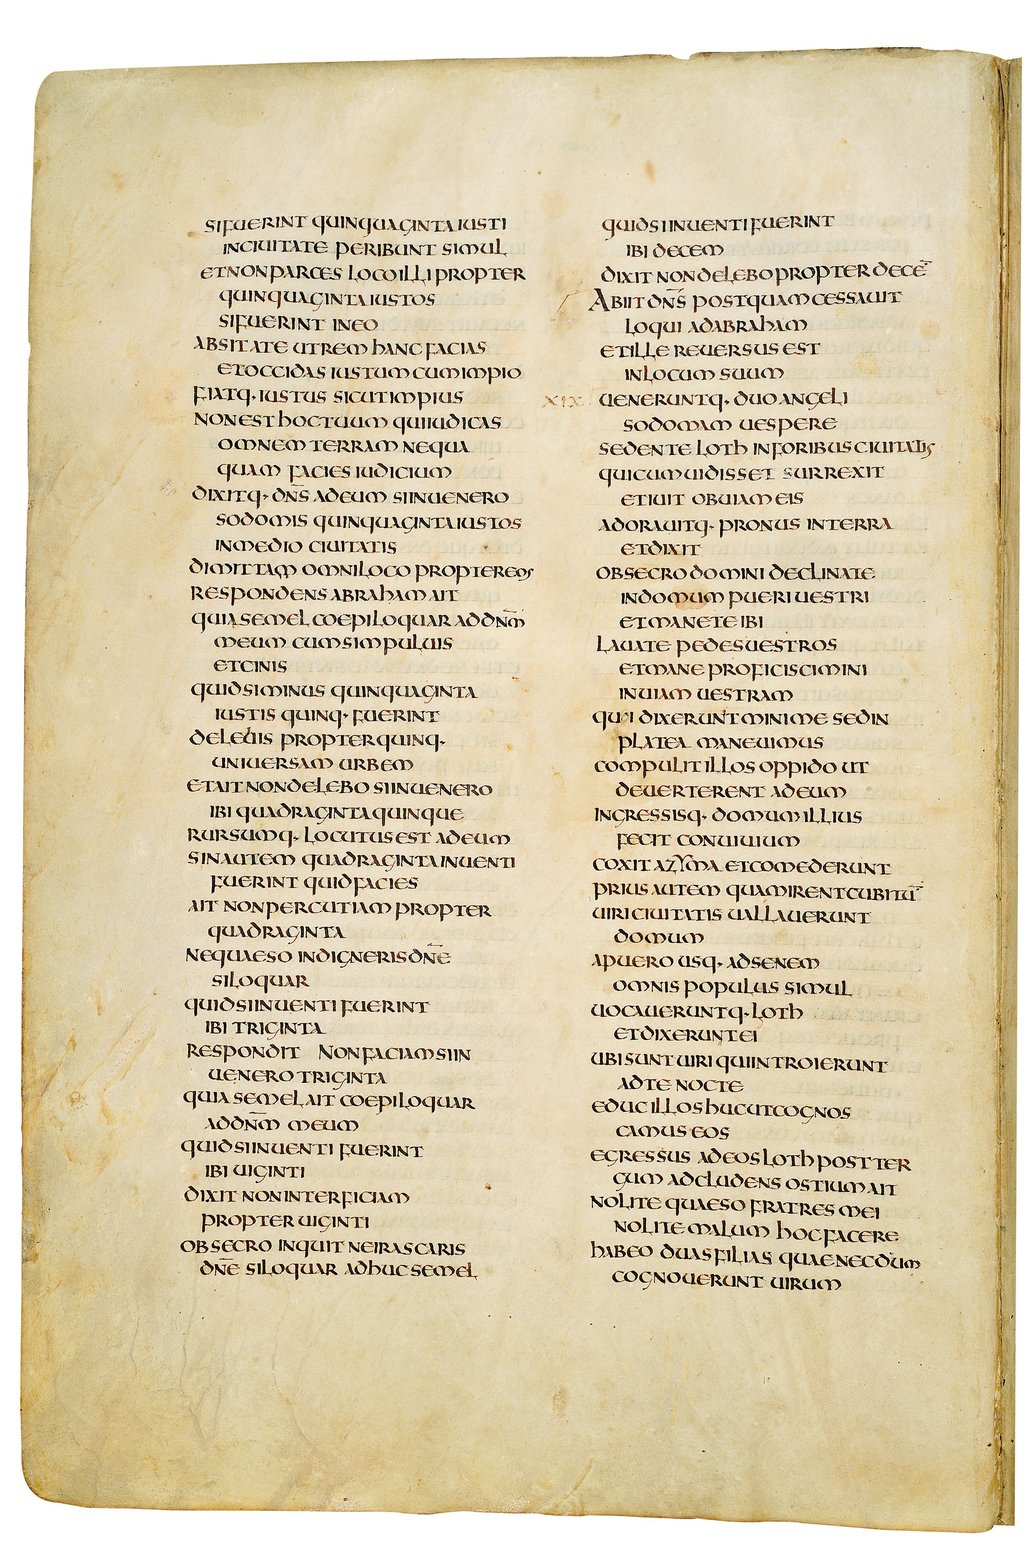 SIFUERINT QUINQUAGINTA IUSTI
INCIUITATE PERIBUNT SIMUL
ETNONPARCES LOCOILLI PROPTER
QUINQUAGINTA IUSTOS
SIFUERINT INEO
ABSIT ATE UTREM HANC FACIAS
ETOCCIDAS IUSTUM CUMIMPIO
FIATQ· IUSTUS SICUTIMPIUS
NONEST HOCTUUM QUIIUDICAS
OMNEM TERRAM NEQUA
QUAM FACIES IUDICIUM
DIXITQ· DN̅S ADEUM SIINUENERO
SODOMIS QUINQUAGINTA IUSTOS
INMEDIO CIUITATIS
DIMITTAM OMNILOCO PROPTEREOS
RESPONDENS ABRAHAM AIT
QUIA SEMEL COEPI LOQUAR AD DN̅M
MEUM CUMSIM PULUIS
ETCINIS
QUIDSIMINUS QUINQUAGINTA
IUSTIS QUINQ· FUERINT
DELEBIS PROPTERQUINQ·
UNIUERSAM URBEM
ETAIT NONDELEBO SIINUENERO
IBI QUADRAGINTAQUINQUE
RURSUMQ· LOCUTUSEST ADEUM
SINAUTEM QUADRAGINTA INUENTI
FUERINT QUIDFACIES
AIT NONPERCUTIAM PROPTER
QUADRAGINTA
NEQUAESO INDIGNERIS DN̅E
SILOQUAR
QUIDSIINUENTI FUERINT
IBI TRIGINTA
RESPONDIT NONFACIAM SIIN
UENERO TRIGINTA
QUIA SEMEL AIT COEPI LOQUAR
ADDN̅M MEUM
QUIDSIINUENTI FUERINT
IBI UIGINTI
DIXIT NONINTERFICIAM
PROPTER UIGINTI
OBSECRO INQUIT NEIRASCARIS
DN̅E SILOQUAR ADHUCSEMEL
QUIDSIINUENTI FUERINT
IBI DECEM
DIXIT NONDELEBO PROPTER DECE̅
ABIIT DN̅S POSTQUAM CESSAUIT
LOQUI ADABRAHAM
ETILLE REUERSUS EST
INLOCUM SUUM
XIX UENERUNTQ· DUO ANGELI
SODOMAM UESPERE
SEDENTE LOTH INFORIBUS CIUITATIS
QUICUMUIDISSET SURREXIT
ETIUIT OBUIAM EIS
ADORAUITQ· PRONUS INTERRA
ETDIXIT
OBSECRO DOMINI DECLINATE
INDOMUM PUERI UESTRI
ETMANETE IBI
LAUATE PEDES UESTROS
ETMANE PROFICISCIMINI
INUIAM UESTRAM
QUI DIXERUNT MINIME SEDIN
PLATEA MANEUIMUS
COMPULIT ILLOS OPPIDO UT
DEUERTERENT ADEUM
INGRESSISQ· DOMUM ILLIUS
FECIT CONUIUIUM
COXIT AZYMA ETCOMEDERUNT
PRIUS AUTEM QUAMIRENT CUBITU̅
UIRI CIUITATIS UALLAUERUNT
DOMUM
APUERO USQ· ADSENEM
OMNIS POPULUS SIMUL
UOCAUERUNTQ· LOTH
ETDIXERUNT EI
UBI SUNT UIRI QUIINTROIERUNT
ADTE NOCTE
EDUC ILLOS HUC UTCOGNOS
CAMUS EOS
EGRESSUS ADEOS LOTH POST TER
GUM ADCLUDENS OSTIUM AIT
NOLITE QUAESO FRATRES MEI
NOLITE MALUM HOC FACERE
HABEO DUAS FILIAS QUAE NECDUM
COGNOUERUNT UIRUM